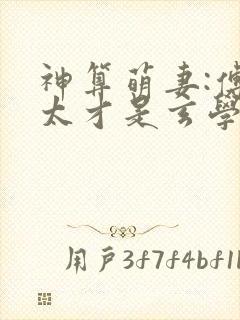 神算萌妻:傅
太才是玄學
用戶3f7f4bf1